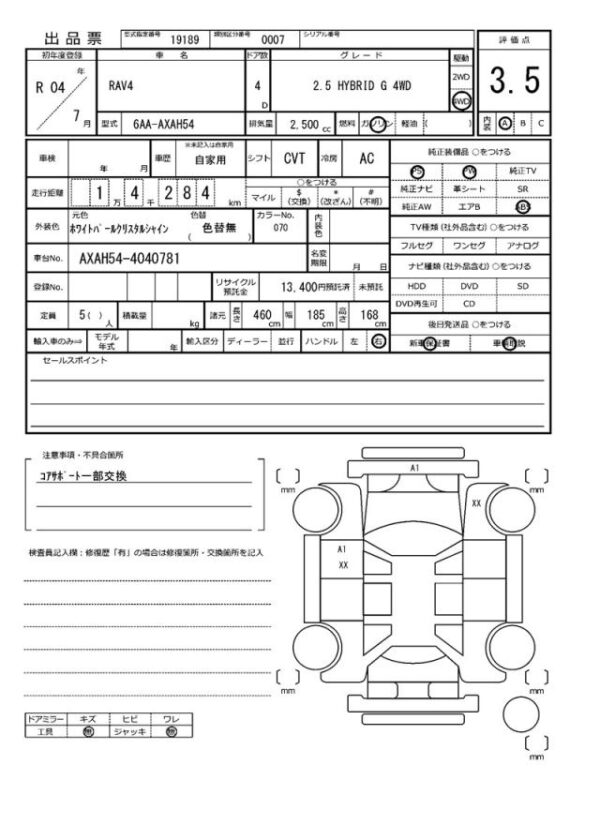 出品票 型式指定番号 19189 類別区分番号 0007 シリアル番号
評価点
3.5
内装 A B C
初年度登録 車名 ドア数 グレード 駆動
R 04 年 7 月
RAV4 4 D 2.5 HYBRID G 4WD 2WD 4WD
型式 6AA-AXAH54 排気量 2,500 cc 燃料 ガソリン 軽油 ( )
車検 年 月 車歴 ※未記入は自家用 自家用 シフト CVT 冷房 AC
走行距離 1 万 4 千 2 8 4 km ○をつける マイル $ (交換) * (改ざん) # (不明)
外装色 元色 ホワイトパールクリスタルシャイン 色替 ( 色替無 ) カラーNo. 070 内装色
車台No. AXAH54-4040781 名変期限 月 日
登録No. リサイクル預託金 13,400円預託済 未預託
定員 5( )人 積載量 kg 諸元 長さ 460 cm 幅 185 cm 高さ 168 cm
輸入車のみ⇒ モデル年式 年 輸入区分 ディーラー 並行 ハンドル 左 右
純正装備品 ○をつける
PS PW 純正TV
純正ナビ 革シート SR
純正AW エアB ABS
TV種類 (社外品含む) ○をつける
フルセグ ワンセグ アナログ
ナビ種類 (社外品含む) ○をつける
HDD DVD SD
DVD再生可 CD
後日発送品 ○をつける
新車保証書 車輌取説
セールスポイント
注意事項・不具合箇所
コアサポート一部交換
検査員記入欄：修復歴「有」の場合は修復箇所・交換箇所を記入
A1
XX
A1
XX
mm
mm
mm
mm
mm
ドアミラー キズ ヒビ ワレ
工具 無 ジャッキ 無